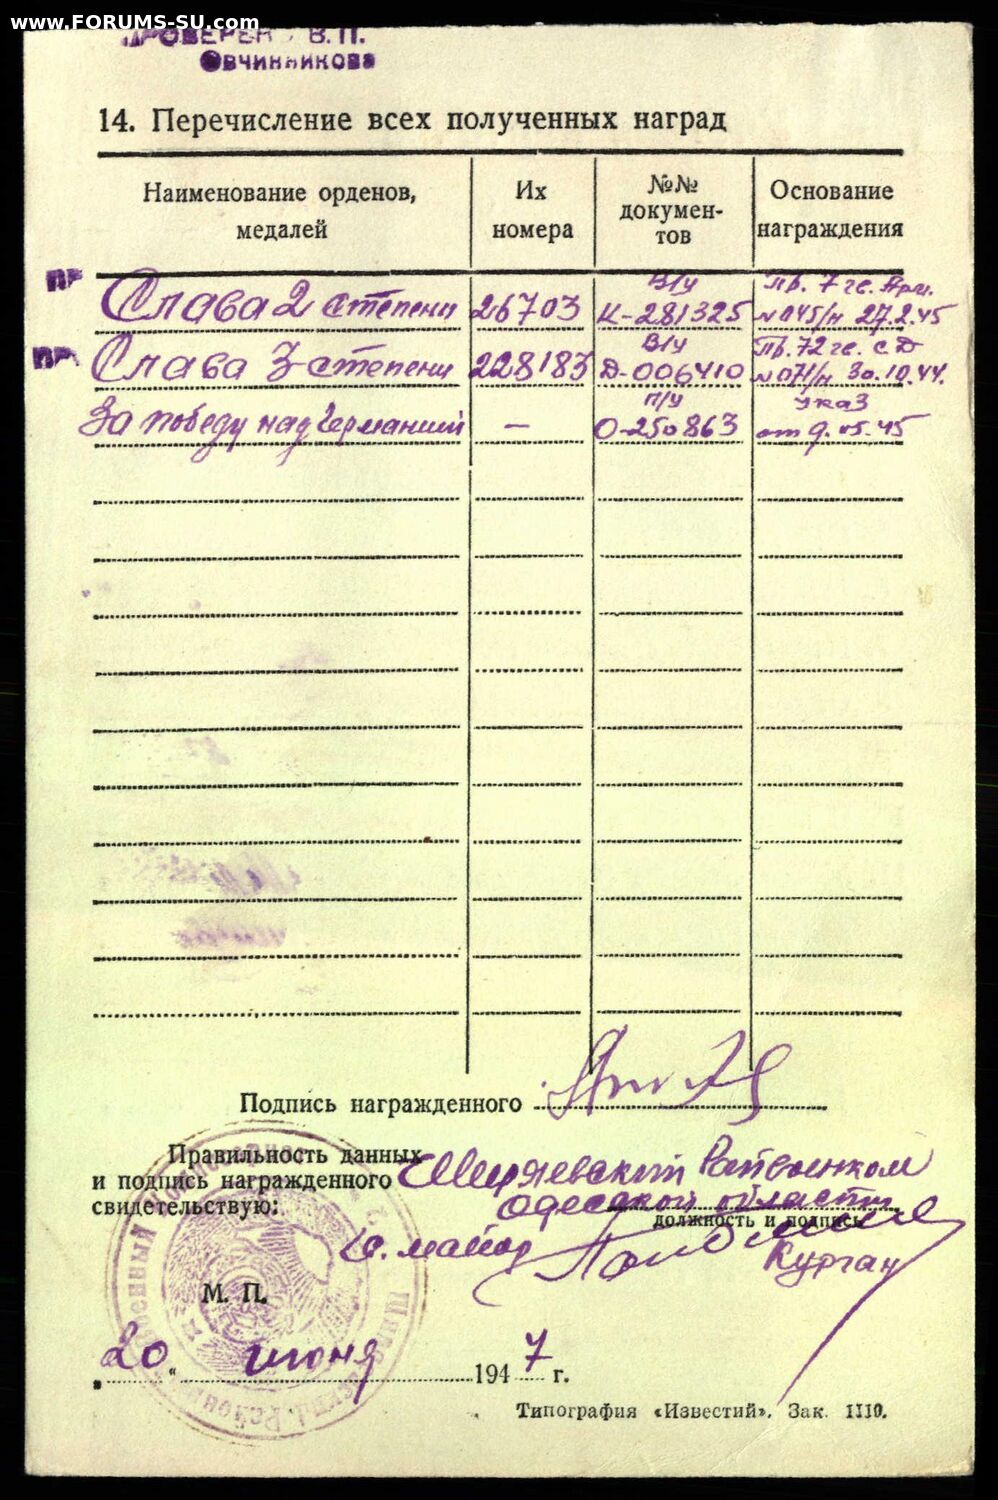 www.FORUMS-SU.com
ПРОВЕРЕН В.П.
Овчинникова
14. Перечисление всех полученных наград
Наименование орденов, медалей
Их номера
№№ документов
Основание награждения
ПР
Слава 2 степени 26703 В/у К-281325 Пр. 7 гв. Арм. №045/н 27.2.45
ПР
Слава 3 степени 228183 В/у Д-006410 Пр. 72 гв. сд №071/н 30.10.44.
За победу над Германией — П/у О-250863 Указ от 9.05.45
Подпись награжденного
Правильность данных
и подпись награжденного
свидетельствую:
Ширяевский Райвоенком
Одесской области
должность и подпись
майор
Курган
М. П.
„20“ июня 1947 г.
Типография «Известий». Зак. 1110.